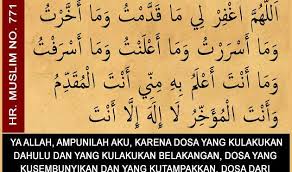 HR. MUSLIM NO. 771
اللَّهُمَّ اغْفِرْ لِي مَا قَدَّمْتُ وَمَا أَخَّرْتُ
وَمَا أَسْرَرْتُ وَمَا أَعْلَنْتُ وَمَا أَسْرَفْتُ
وَمَا أَنْتَ أَعْلَمُ بِهِ مِنِّي أَنْتَ الْمُقَدِّمُ
وَأَنْتَ الْمُؤَخِّرُ لَا إِلَهَ إِلَّا أَنْتَ
YA ALLAH, AMPUNILAH AKU, KARENA DOSA YANG KULAKUKAN
DAHULU DAN YANG KULAKUKAN BELAKANGAN, DOSA YANG
KUSEMBUNYIKAN DAN YANG KUTAMPAKKAN, DOSA DARI